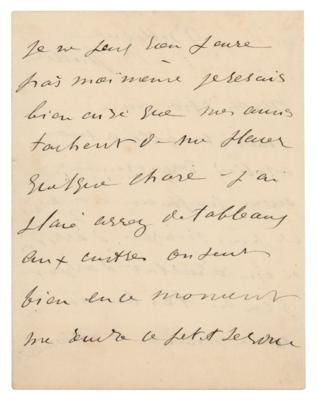 je ne peux rien faire
par moi même je serais
bien aise que mes amis
tachent de me placer
quelque chose – j'ai
placé assez de tableaux
aux autres on peut
bien en ce moment
me rendre ce petit service